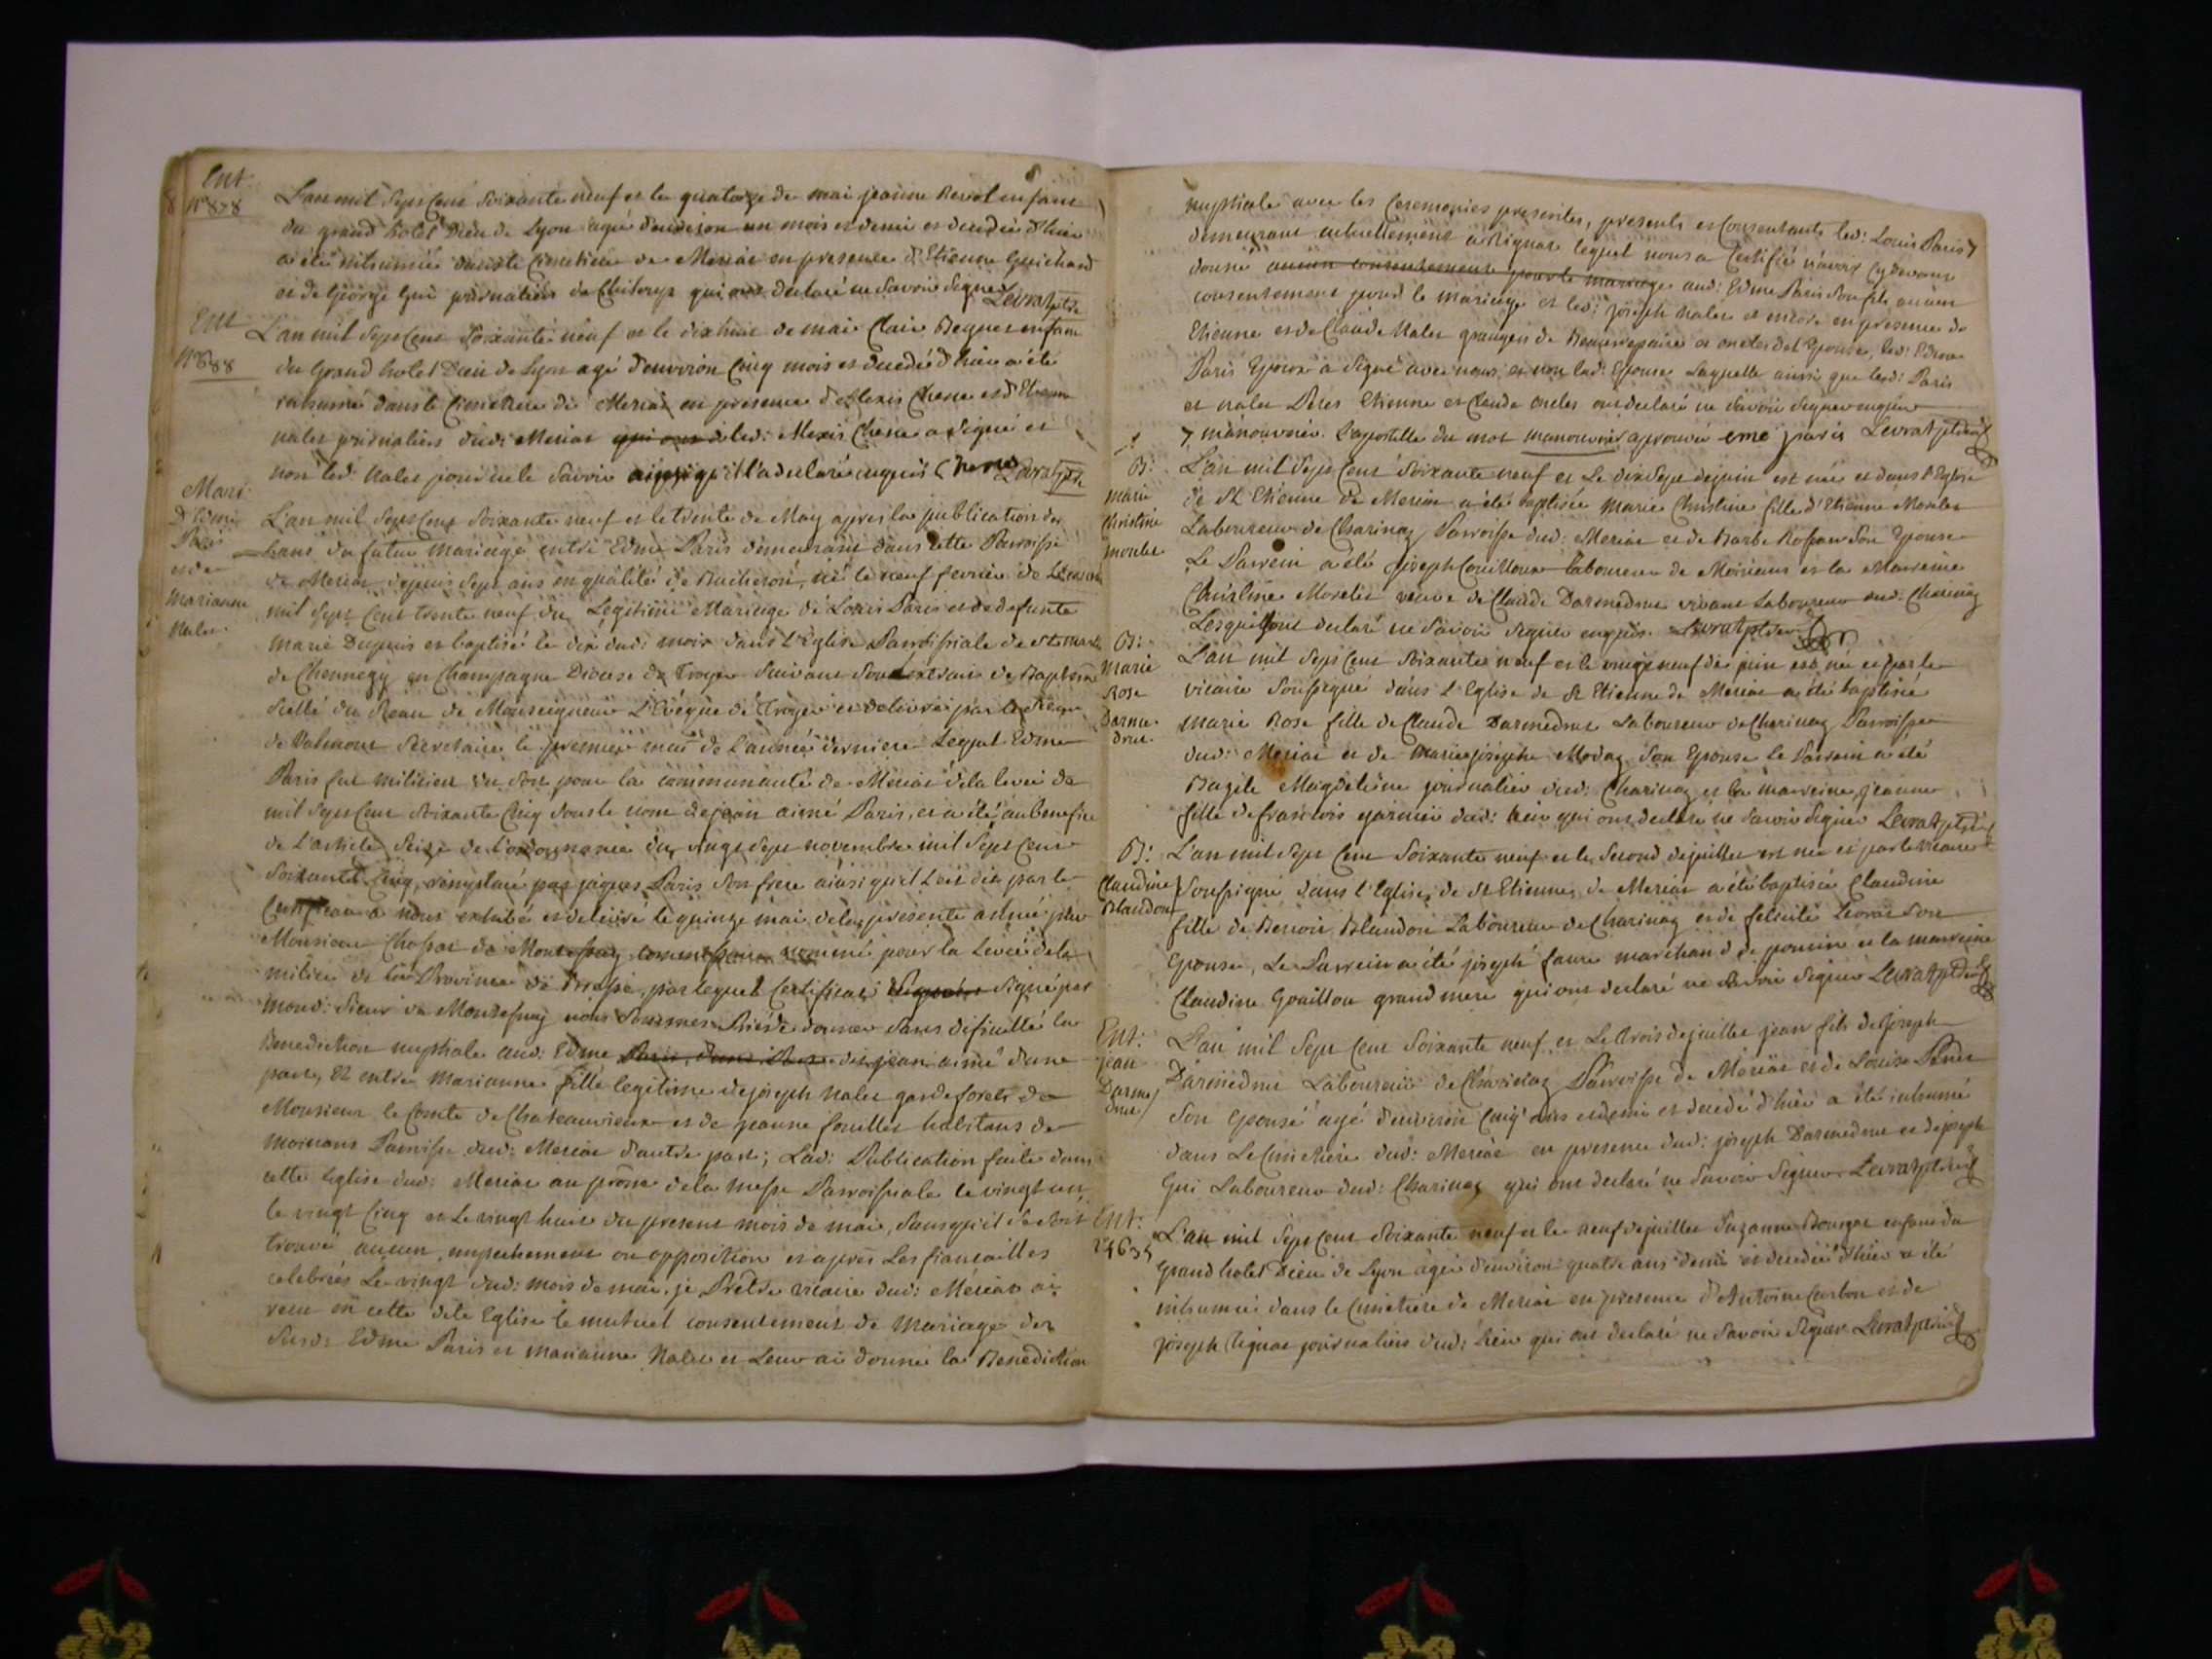 8
Ent
N°878
L'an mil Sept Cent Soixante neuf et le quatorze de mai jeanne Revol enfant
du grand hotel Dieu de Lyon agée d'environ un mois et demi et decedée d'hier
a été inhumée dans le Cimetiere de Meriat en presence d'Etienne Guichard
et de George Gui journaliers de qui ont declaré ne Savoir Signer Levrat ptre
Ent
N°688
L'an mil Sept Cent Soixante neuf et le dix huit de mai Clair Beguet enfant
du Grand hotel Dieu de Lyon agé d'environ Cinq mois et decedé d'hier a été
inhumé dans le Cimetiere de Meriat en presence d'Alexis Chene et d'Etienne
nalet journaliers dud: Meriat qui ont led: Alexis Chene a Signé et
non led: Nalet pour ne le Savoir ainsi qu'il l'a declaré enquis Chene Levrat ptre
Mari
D'Edme
Paris
et de
Marianne
Nalet
L'an mil Sept Cent Soixante neuf et le trente de May apres la publication des
bans du futur mariage entre Edme Paris demeurant dans cette Parroisse
de Meriat depuis Sept ans en qualité de Bucheron, né le neuf fevrier de L'année
mil Sept Cent trente neuf du Légitime Mariage de Louis Paris et de defunte
marie Dupuis et baptisé le dix dud: mois dans l'église Parroissiale de St
de Chennegy en Champagne Diocese de Troyes Suivant Son extrait de Baptême
Scellé du Sceau de Monseigneur L'Evêque de Troyes et delivré par le Sieur
de Valmont Secretaire le premier mai de l'année derniere Lequel Edme
Paris fut milicien du Sort pour la communauté de Meriat de la levée de
mil Sept Cent Soixante Cinq Sous le nom de jean aimé Paris, et a été au benefice
de L'article Seize de l'ordonnance du vingt Sept novembre mil Sept Cent
Soixante Cinq, remplacé par jaques Paris Son frere ainsi qu'il est dit par le
Certificat a nous exhibé et delivré le quinze mai de la presente année par
Monsieur Chossat de Montessuy nommé pour la Levée de la
milice de la Province de Bresse, par lequel Certificat Signé par
mond: Sieur de Montessuy nous Sommes Priés de donner Sans dificulté la
Benediction nuptiale aud: Edme Paris, d'une Part dit jean aimé d'une
part, Et entre Marianne fille legitime de joseph Nalet garde forets de
Monsieur le Comte de Chateauvieux et de jeanne fouillet habitans de
Moirans Parroisse dud: Meriat d'autre part; Lad: Publication faite dans
cette Eglise dud: Meriat au prône de la Messe Parroissiale le vingt un,
le vingt Cinq et Le vingt huit du present mois de mai, Sans qu'il Se Soit
trouvé aucun empechement ou opposition et après Les fiançailles
celebrées Le vingt dud: mois de mai, je Prêtre vicaire dud: Mériat ai
reçu en cette dite Eglise le mutuel consentement de Mariage des
Susd: Edme Paris et marianne Nalet et Leur ai donné la Benediction
nuptiale avec les Ceremonies prescrites, presents et Consentants led: Louis Paris
demeurant actuellement a Rignat lequel nous a Certifié n'avoir Cy devant
donné aucun consentement pour le mariage aud: Edme Paris Son fils aucun
consentement pour le mariage et led: joseph Nalet et encore en presence de
Etienne et de Claude Nalet grangers de Beaurepaire et oncles de l'Epouse, led: Edme
Paris Epoux a Signé avec nous et non lad: Epouse Laquelle ainsi que led: Paris
et nalet Peres Etienne et Claude oncles ont declaré ne Savoir Signer enquis
manouvrier. L'apostille du mot manouvrier aprouvée eme paris Levrat ptre
B:
marie
Christine
morelet
L'an mil Sept Cent Soixante neuf et Le dix Sept de juin est née et dans l'Eglise
de St Etienne de Meriat a été baptisée Marie Christine fille d'Etienne Morelet
Laboureur de Charinaz Parroisse dud: Meriat et de Barbe Rossan Son Epouse
Le Parrein a été joseph Couilloux laboureur de Moirans et la Marreine
Christine Morelet veuve de Claude Darmedrue vivant Laboureur aud: Charinaz
Lesquels ont declaré ne Savoir Signer enquis. Levrat ptre
B:
Marie
Rose
Darme-
drue.
L'an mil Sept Cent Soixante neuf et le vingt neuf de juin est née et par le
vicaire Soussigné dans l'Eglise de St Etienne de Meriat a été baptisée
marie Rose fille de Claude Darmedrue Laboureur de Charinaz Parroisse
dud: Meriat et de Marie josephe Modaz Son Epouse le Parrein a été
Bazile Magdeleine journalier dud: Charinaz et la marreine jeanne
fille de francois garnier dud: lieu qui ont declaré ne Savoir Signer Levrat ptre
B:
Claudine
Blandon
L'an mil Sept Cent Soixante neuf et le Second de juillet est née et par le vicaire
Soussigné dans l'Eglise de St Etienne de Meriat a été baptisée Claudine
fille de Benoit Blandon Laboureur de Charinaz et de felicité Levrat Son
Epouse, Le Parrein a été joseph faure marchand de poncin et la marreine
Claudine Gouillou grand mere qui ont declaré ne Savoir Signer Levrat ptre
Ent:
jean
Darme
drue
L'an mil Sept Cent Soixante neuf et Le trois de juillet jean fils de joseph
Darmedrue Laboureur de Charinaz Parroisse de Mériat et de Louise
Son epouse agé d'environ Cinq ans et demi et decedé d'hier a été inhumé
dans Le Cimetiere dud: Meriat en presence dud: joseph Darmedrue et de joseph
Gui Laboureur dud: Charinaz qui ont declaré ne Savoir Signer Levrat ptre
Ent:
L'an mil Sept Cent Soixante neuf et le neuf de juillet Suzanne enfant du
grand hotel Dieu de Lyon agée d'environ quatre ans demi et decedée d'hier a été
inhumée dans le Cimetiere de Meriat en presence d'Antoine Carbon et de
joseph journaliers dud: Lieu qui ont declaré ne Savoir Signer Levrat ptre